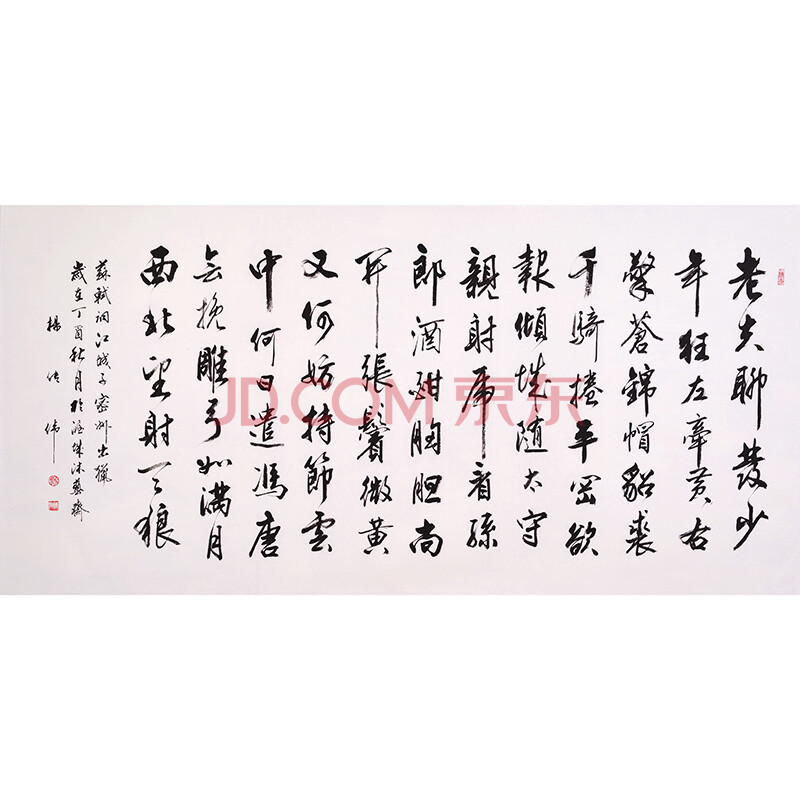 老夫聊發少
年狂左牽黄右
擎蒼錦帽貂裘
千騎捲平岡欲
報傾城随太守
親射虎看孫
郎酒酣胸胆尚
开張鬢微黄
又何妨持節雲
中何日遣馮唐
会挽雕弓如满月
西北望射天狼
蘇軾詞江城子密州出獵
歲在丁酉秋月於城沐藝齋
楊传伟
JD.COM 京东